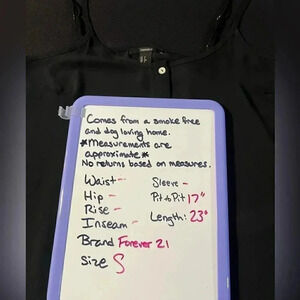 Comes from a smoke free
and dog loving home.
*Measurements are
approximate*
No returns based on measures.
Waist -
Hip -
Rise -
Inseam -
Sleeve -
Pit to Pit 17"
Length: 23"
Brand Forever 21
Size S